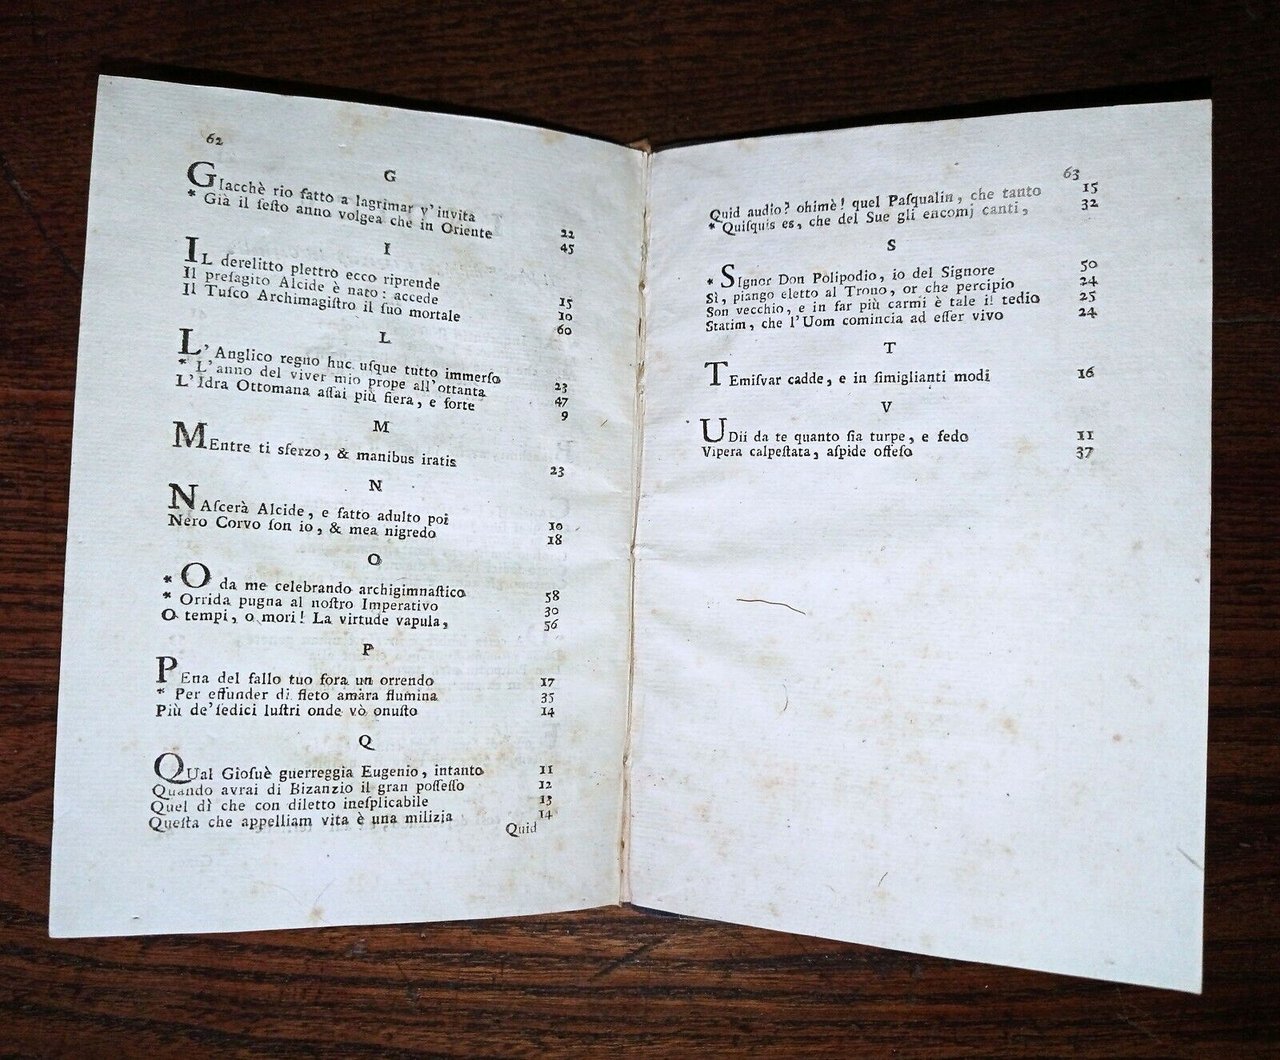 62
G
GIacchè rio fatto a lagrimar v'invita 22
* Già il ſeſto anno volgea che in Oriente 45
I
IL derelitto plettro ecco riprende 15
Il preſagito Alcide è nato: accede 10
Il Tuſco Archimagiſtro il ſuo mortale 60
L
L'Anglico regno huc uſque tutto immerſo 23
* L'anno del viver mio prope all'ottanta 47
L'Idra Ottomana aſſai più fiera, e forte 9
M
MEntre ti sferzo, & manibus iratis 23
N
NAſcerà Alcide, e fatto adulto poi 10
Nero Corvo ſon io, & mea nigredo 18
O
* O da me celebrando archigimnaſtico 58
* Orrida pugna al noſtro Imperativo 30
O tempi, o mori! La virtude vapula, 56
P
PEna del fallo tuo fora un orrendo 17
* Per effunder di fleto amara flumina 35
Più de' ſedici luſtri onde vò onuſto 14
Q
QUal Gioſuè guerreggia Eugenio, intanto 11
Quando avrai di Bizanzio il gran poſſeſſo 12
Quel dì che con diletto ineſplicabile 13
Queſta che appelliam vita è una milizia 14
Quid
63
Quid audio? ohimè! quel Paſqualin, che tanto 15
* Quiſquis es, che del Sue gli encomj canti, 32
S
* SIgnor Don Polipodio, io del Signore 50
Sì, piango eletto al Trono, or che percipio 24
Son vecchio, e in far più carmi è tale il tedio 25
Statim, che l'Uom comincia ad eſſer vivo 24
T
TEmiſvar cadde, e in ſimiglianti modi 16
V
UDii da te quanto ſia turpe, e fedo 11
Vipera calpeſtata, aſpide offeſo 37